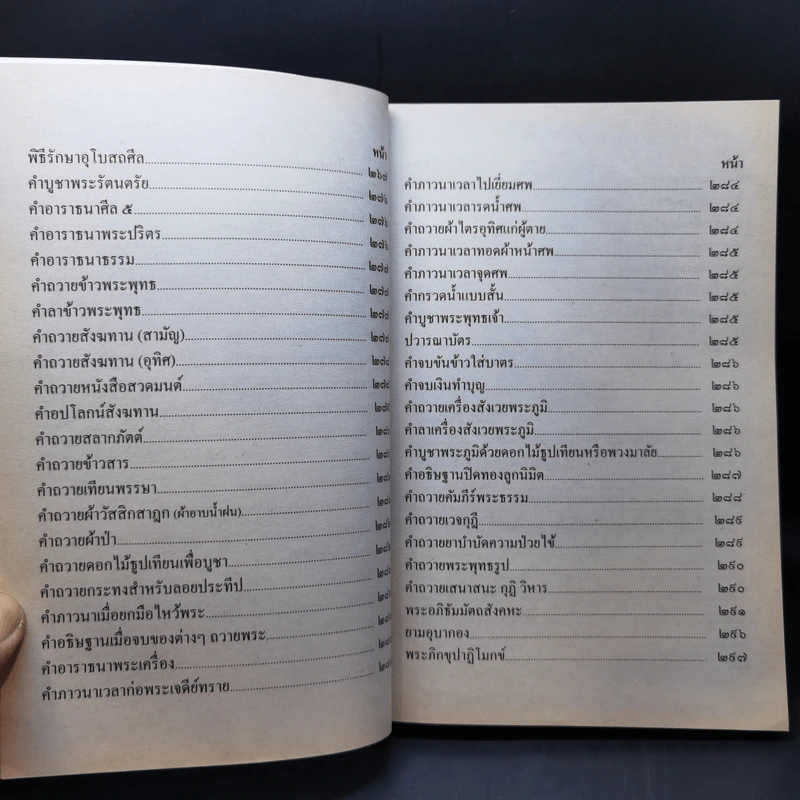 หน้า
พิธีรักษาอุโบสถศีล
คำบูชาพระรัตนตรัย
คำอาราธนาศีล ๕
คำอาราธนาพระปริตร
คำอาราธนาธรรม
คำถวายข้าวพระพุทธ
คำลาข้าวพระพุทธ
คำถวายสังฆทาน (สามัญ)
คำถวายสังฆทาน (อุทิศ)
คำถวายหนังสือสวดมนต์
คำอปโลกน์สังฆทาน
คำถวายสลากภัตต์
คำถวายข้าวสาร
คำถวายเทียนพรรษา
คำถวายผ้าวัสสิกสาฎก (ผ้าอาบน้ำฝน)
คำถวายผ้าป่า
คำถวายดอกไม้ธูปเทียนเพื่อบูชา
คำถวายกระทงสำหรับลอยประทีป
คำภาวนาเมื่อยกมือไหว้พระ
คำอธิษฐานเมื่อจบของต่างๆ ถวายพระ
คำอาราธนาพระเครื่อง
คำภาวนาเวลาก่อพระเจดีย์ทราย
หน้า
คำภาวนาเวลาไปเยี่ยมศพ ๒๘๔
คำภาวนาเวลารดน้ำศพ ๒๘๔
คำถวายผ้าไตรอุทิศแก่ผู้ตาย ๒๘๔
คำภาวนาเวลาทอดผ้าหน้าศพ ๒๘๕
คำภาวนาเวลาจุดศพ ๒๘๕
คำกรวดน้ำแบบสั้น ๒๘๕
คำบูชาพระพุทธเจ้า ๒๘๕
ปวารณาบัตร ๒๘๕
คำจบขันข้าวใส่บาตร ๒๘๖
คำจบเงินทำบุญ ๒๘๖
คำถวายเครื่องสังเวยพระภูมิ ๒๘๖
คำลาเครื่องสังเวยพระภูมิ ๒๘๖
คำบูชาพระภูมิด้วยดอกไม้ธูปเทียนหรือพวงมาลัย ๒๘๖
คำอธิษฐานปิดทองลูกนิมิต ๒๘๗
คำถวายคัมภีร์พระธรรม ๒๘๘
คำถวายเวจกุฎี ๒๘๙
คำถวายยาบำบัดความป่วยไข้ ๒๘๙
คำถวายพระพุทธรูป ๒๙๐
คำถวายเสนาสนะ กุฏิ วิหาร ๒๙๐
พระอภิธัมมัตถสังคหะ ๒๙๑
ยามอุบากอง ๒๙๖
พระภิกขุปาฏิโมกข์ ๒๙๗